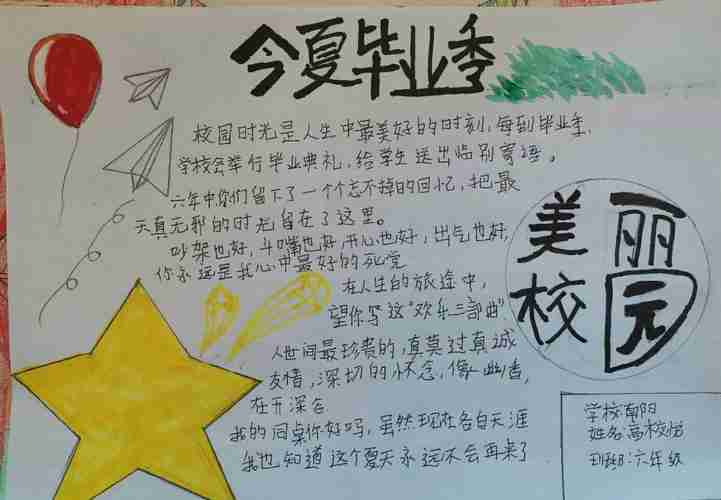 今夏毕业季
校园时光是人生中最美好的时刻,每到毕业季,
学校会举行毕业典礼,给学生送出临别寄语。
六年中你们留下了一个个忘不掉的回忆,把最
天真无邪的时光留在了这里。
吵架也好,斗嘴也好,开心也好,出气也好,
你永远是我心中最好的死党
在人生的旅途中,
望你写这"欢乐三部曲"
人世间最珍贵的,真莫过真诚
友情,深切的怀念,像幽香,
在开深谷
我的同桌你好吗,虽然现在各自天涯
我也知道这个夏天永远不会再来了
美丽
校园
学校:朝阳
姓名:高校怡
班级:六年级